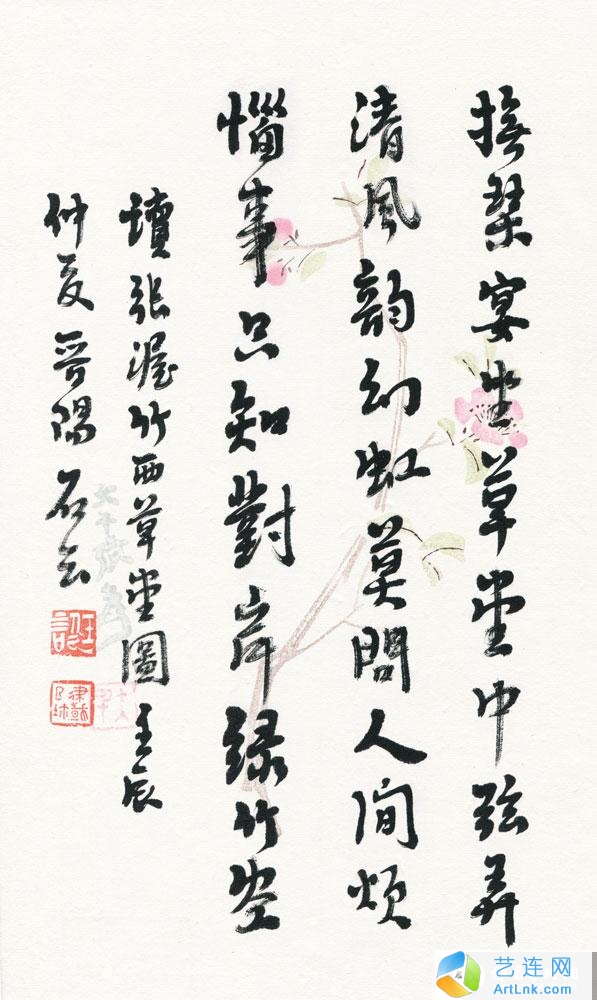 撫琴宴坐草堂中弦弄
清風韵幻虹莫問人间煩
惱事只知對岸緑竹空
讀张渥竹西草堂圖壬辰
仲夏晉陽石云
大千張爰
艺连网
ArtLnk.com